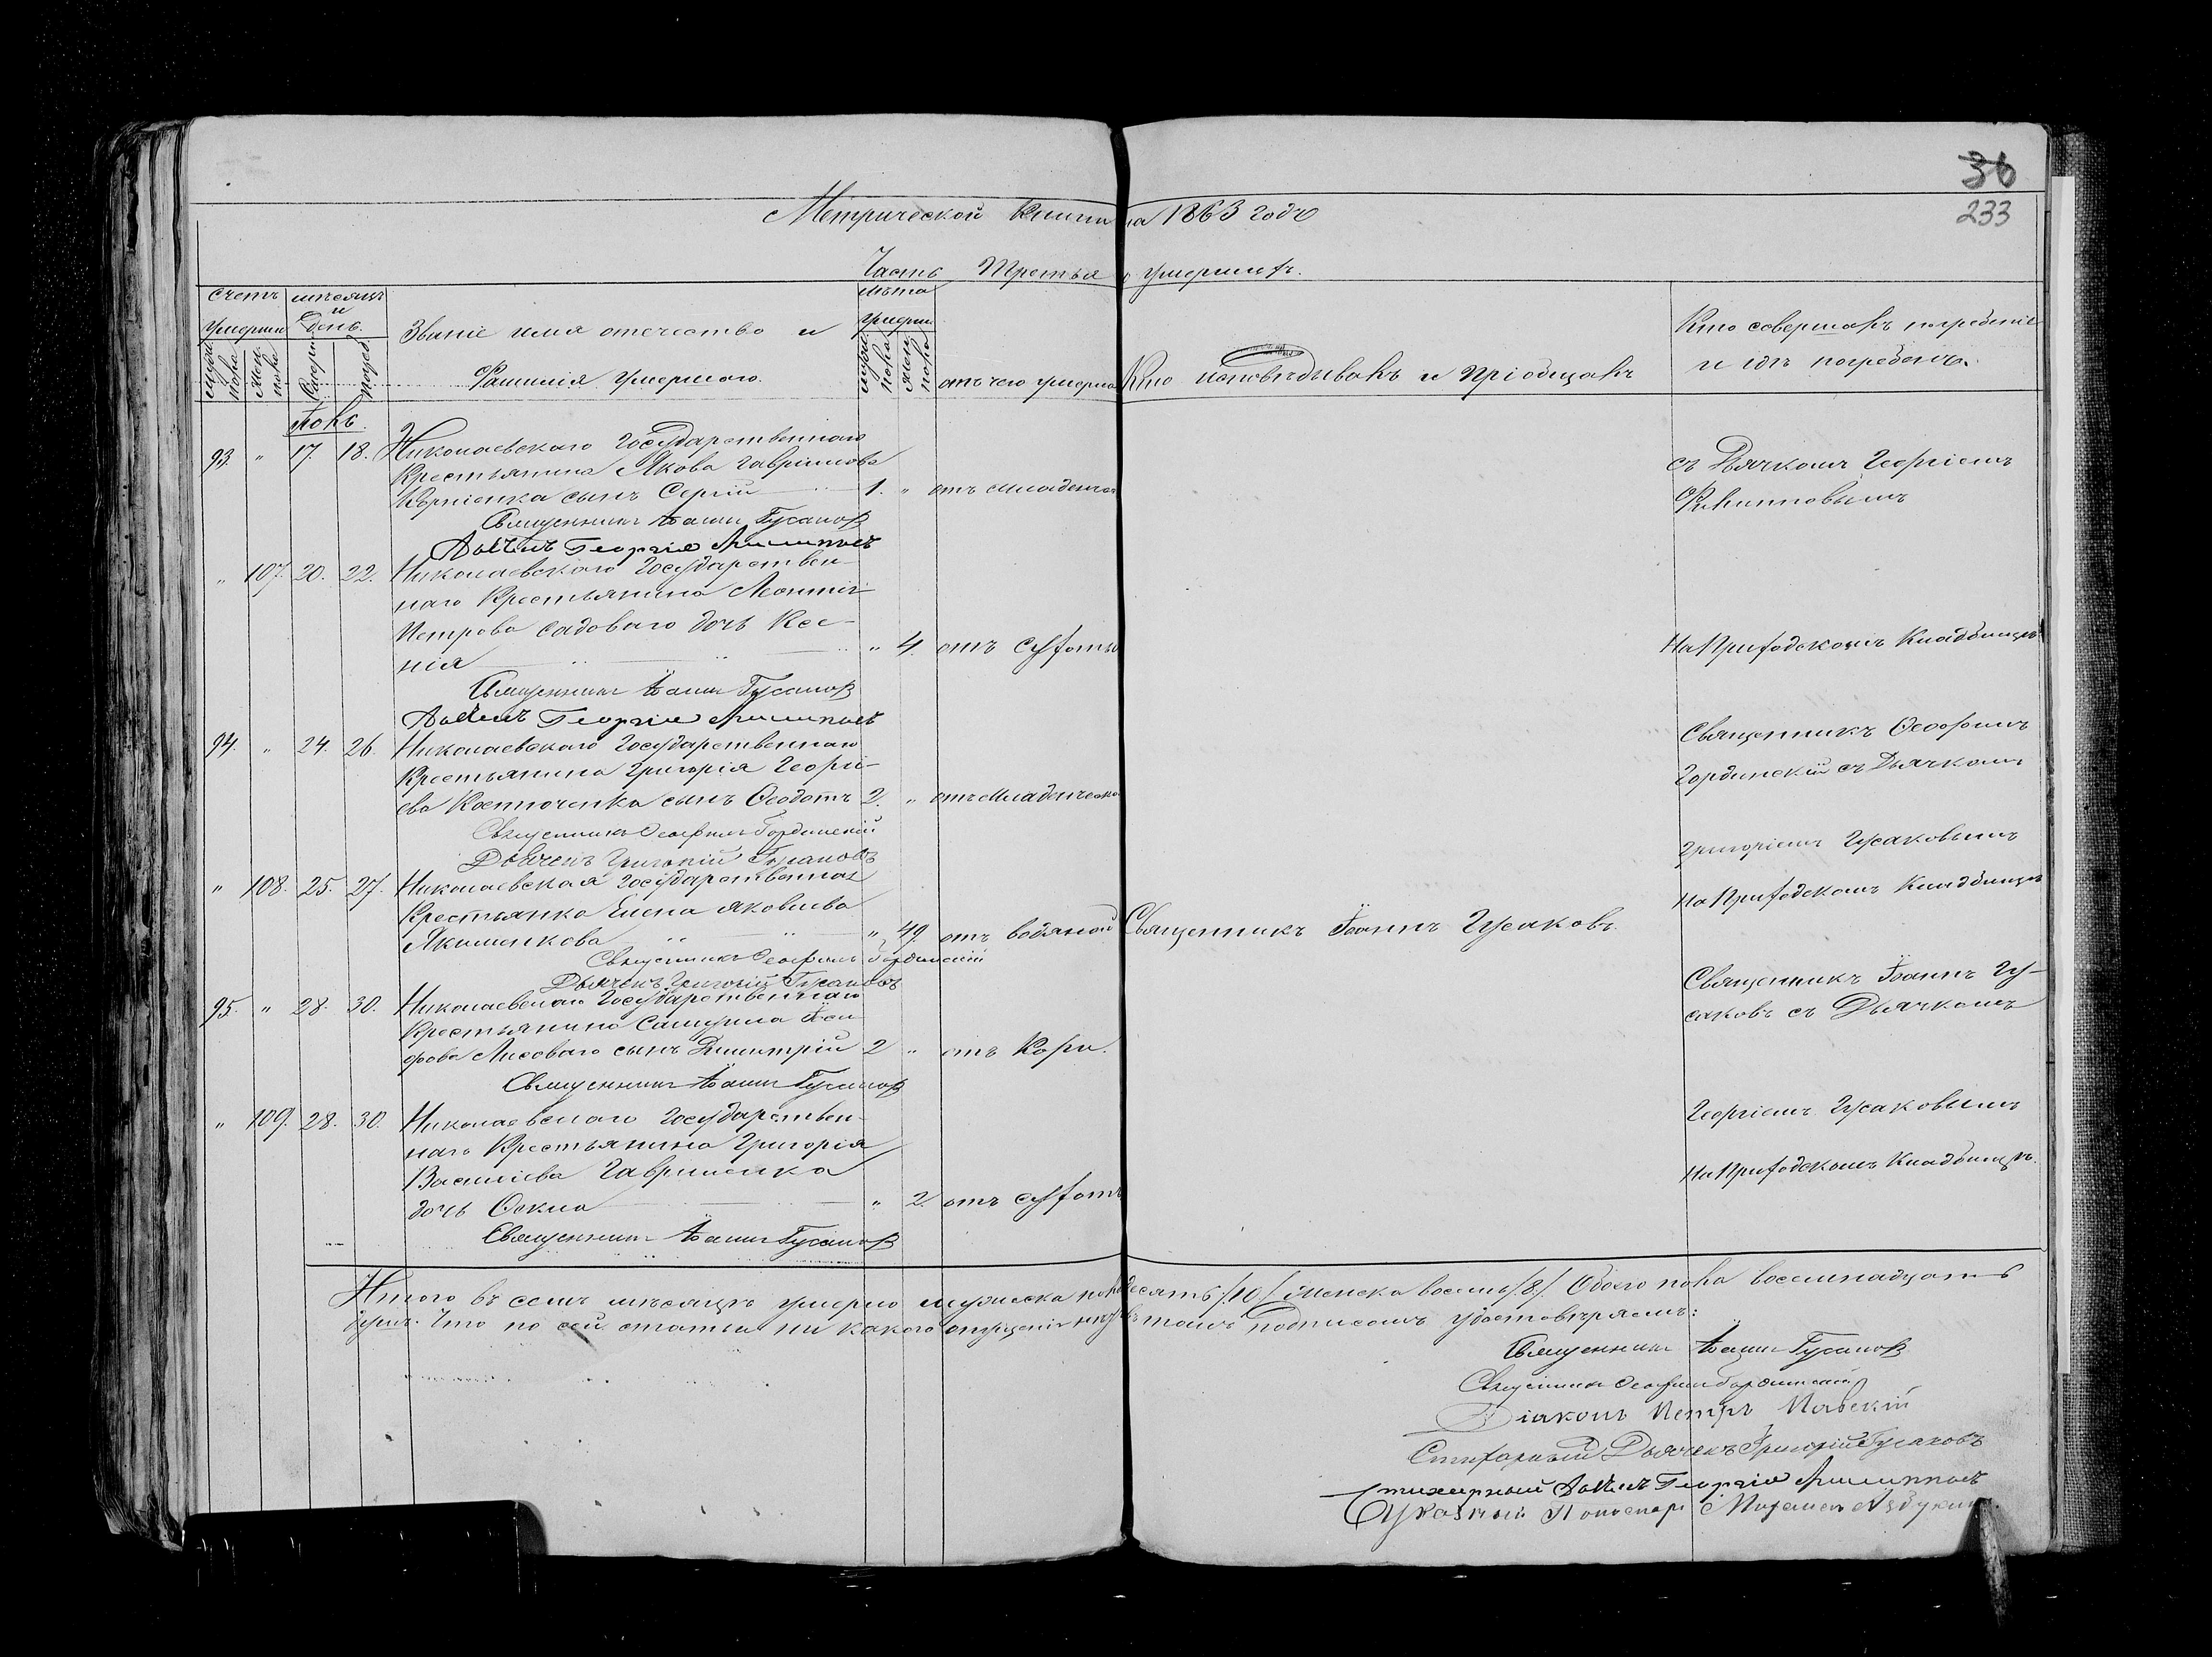 36
233
Метрической книги на 1863 годъ
Часть Третья о умершихъ.
счетъ умершихъ
мужеска пола
женска пола
мѣсяцъ и день.
смерти
погреб.
Званіе имя отечество и
Фамилія умершаго.
лѣта умерш.
мужес. пола
женс. пола
отъ чего умеръ
Кто исповѣдывалъ и пріобщалъ
Кто совершалъ погребеніе
и гдѣ погребены.
93. " 17. 18. Николаевскаго Государственнаго
Крестьянина Якова Гаврилова
сынъ Сергій 1. " отъ младенческ
Священникъ Іоаннъ Гусаковъ
Дьячекъ Георгій Филиповъ
съ Дьячкомъ Георгіемъ
Филиповымъ
" 107. 20. 22. Николаевскаго Государствен-
наго Крестьянина Леонтія
Петрова Садоваго дочь Ксе-
нія " 4. отъ сухоты
Священникъ Іоаннъ Гусаковъ
Дьячекъ Георгій Филиповъ
На Приходскомъ Кладбищѣ
94. " 24. 26. Николаевскаго Государственнаго
Крестьянина Григорія Георгі-
ева Костюченка сынъ Ѳеодотъ 2. " отъ младенческ
Священникъ Ѳеофилъ Гординскій
Дьячекъ Григорій Гусаковъ
Священникъ Ѳеофилъ
Гординскій съ Дьячкомъ
Григоріемъ Гусаковымъ
На Приходскомъ Кладбищѣ
" 108. 25. 27. Николаевская Государственная
Крестьянка Елена Яковлева
Якименкова " 49. отъ водяной Священникъ Іоаннъ Гусаковъ.
Священникъ Ѳеофилъ Гординскій
Дьячекъ Григорій Гусаковъ
95. " 28. 30. Николаевскаго Государственнаго
Крестьянина Самуила Іси-
дорова Лисоваго сынъ Димитрій 2 " отъ кори.
Священникъ Іоаннъ Гусаковъ
Священникъ Іоаннъ Гу-
саковъ съ Дьячкомъ
" 109. 28. 30. Николаевскаго Государствен-
наго Крестьянина Григорія
Василіева Гавриленка
дочь " 2. отъ сухоты
Священникъ Іоаннъ Гусаковъ
Георгіемъ Гусаковымъ
На Приходскомъ Кладбищѣ.
Итого въ семъ мѣсяцѣ умерло мужеска пола десять /10/ женска восемь /8/ Обоего пола восемнадцать
душъ. Что по сей статьи ни какого опущенія нѣтъ въ томъ подписомъ удостовѣряемъ:
Священникъ Іоаннъ Гусаковъ
Священникъ Ѳеофилъ Гординскій
Діаконъ Петръ
Стихарный Дьячекъ Григорій Гусаковъ
Стихарный Дьячекъ Георгій Филиповъ
Указный Пономарь